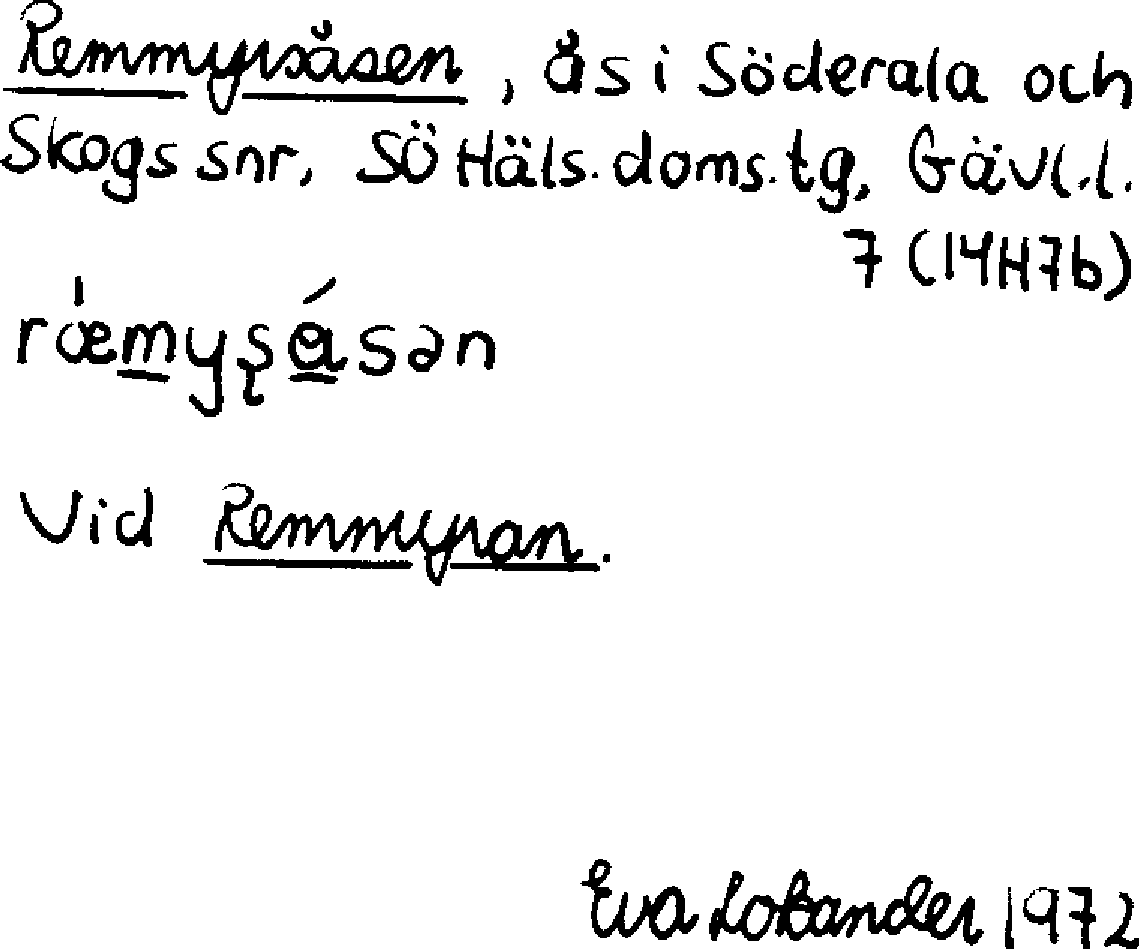 Remmyrsåsen, ås i Söderala och
Skogs snr, SÖ Häls. doms.tg, Gävl.l.
7 (14H7b)
Vid Remmyran.
Eva 1972